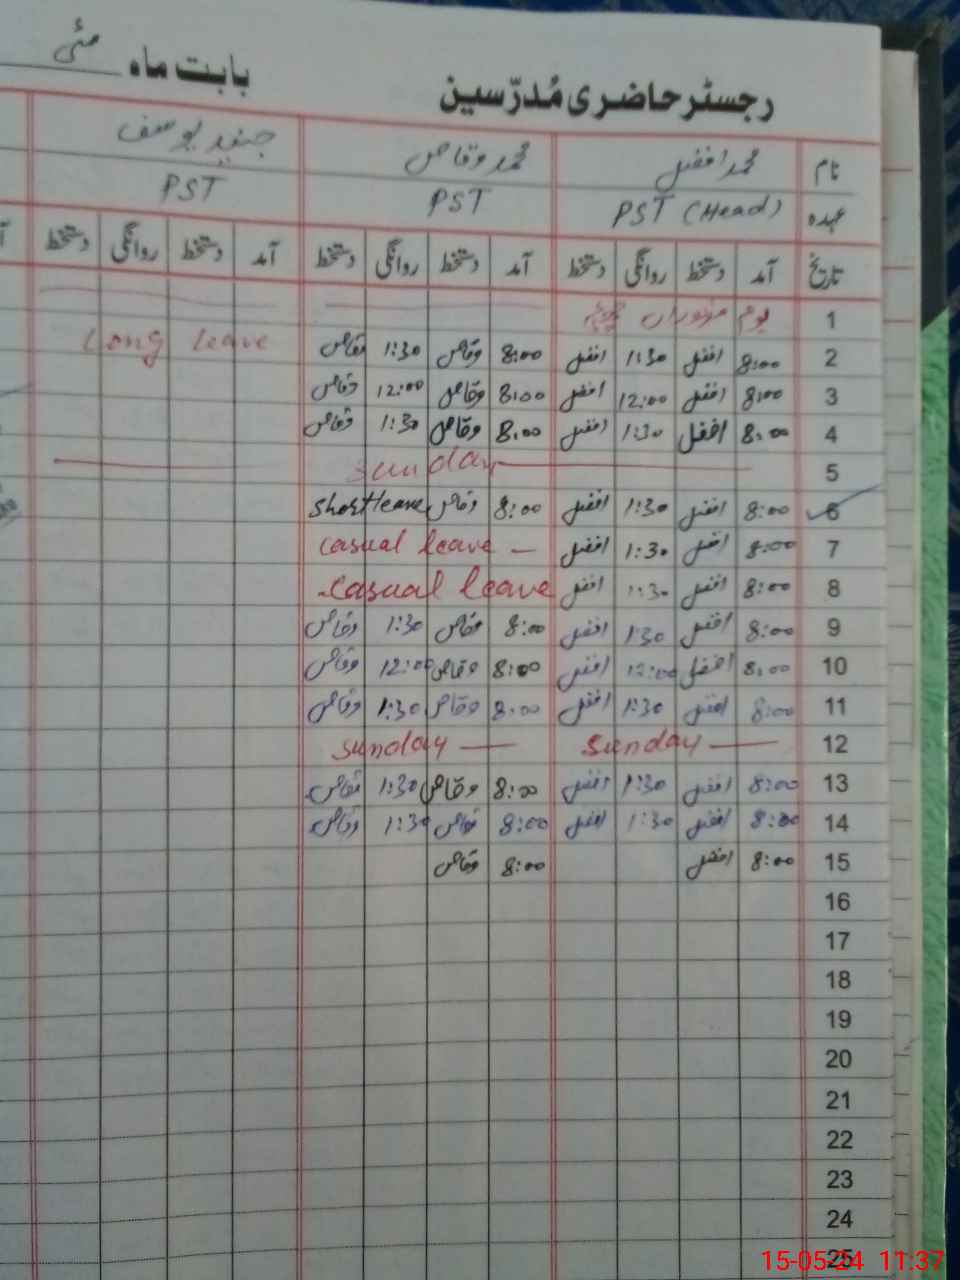 رجسٹر حاضری مُدرّسین بابت ماہ مئی
نام محمد افضل محمد وقاص جنید یوسف
عہدہ PST (Head) PST PST
تاریخ آمد دستخط روانگی دستخط آمد دستخط روانگی دستخط آمد دستخط روانگی دستخط
1 یوم مزدوراں
2 8:00 افضل 1:30 افضل 8:00 وقاص 1:30 وقاص Long Leave
3 8:00 افضل 12:00 افضل 8:00 وقاص 12:00 وقاص
4 8:00 افضل 1:30 افضل 8:00 وقاص 1:30 وقاص
5 Sunday
6 8:00 افضل 1:30 افضل 8:00 وقاص Short leave
7 8:00 افضل 1:30 افضل casual leave
8 8:00 افضل 1:30 افضل Casual leave
9 8:00 افضل 1:30 افضل 8:00 وقاص 1:30 وقاص
10 8:00 افضل 12:00 افضل 8:00 وقاص 12:00 وقاص
11 8:00 افضل 1:30 افضل 8:00 وقاص 1:30 وقاص
12 Sunday Sunday
13 8:00 افضل 1:30 افضل 8:00 وقاص 1:30 وقاص
14 8:00 افضل 1:30 افضل 8:00 وقاص 1:30 وقاص
15 8:00 افضل 8:00 وقاص
16
17
18
19
20
21
22
23
24
25
15-05-24 11:37